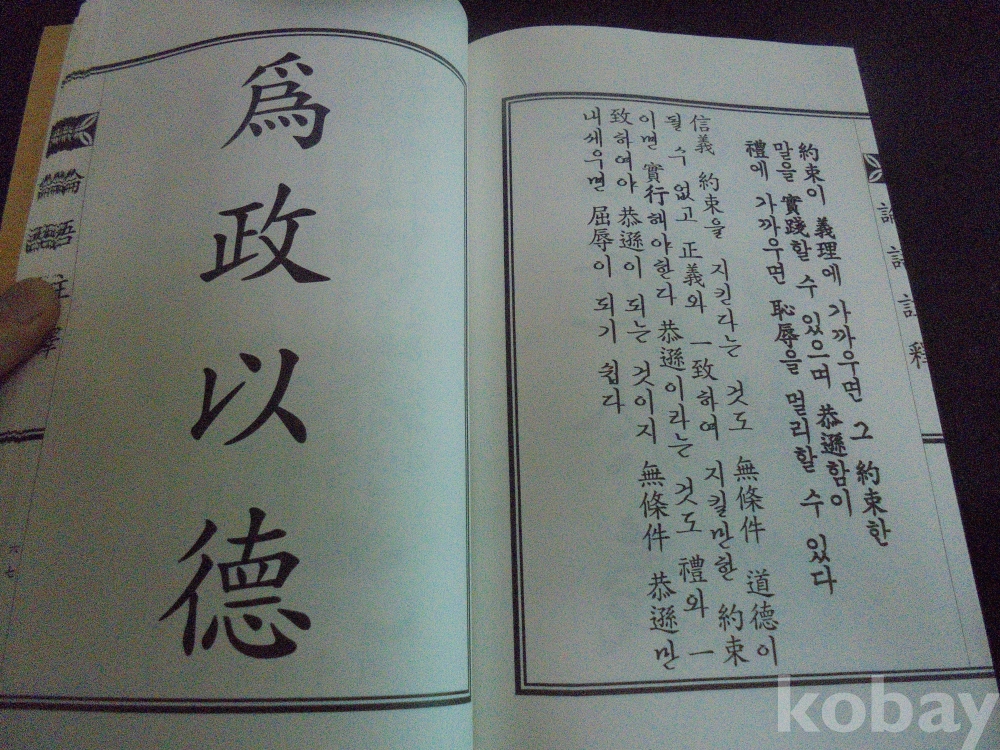 論語註釋
約束이 義理에 가까우면 그 約束한
말을 實踐할 수 있으며 恭遜함이
禮에 가까우면 恥辱을 멀리할 수 있다
信義 約束을 지킨다는 것도 無條件 道德이
될 수 없고 正義와 一致하여 지킬만한 約束
이면 實行해야한다 恭遜이라는 것도 禮와 一
致하여야 恭遜이 되는 것이지 無條件 恭遜만
내세우면 屈辱이 되기 쉽다
爲政以德
論語註釋
六七
kobay